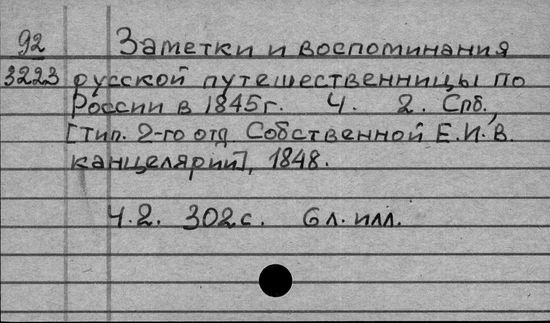 92 Заметки и воспоминания
3223 русской путешественницы по
России в 1845г. Ч. 2. Спб.,
[тип. 2-го отд Собственной Е.И.В.
канцелярии], 1848.
Ч.2. 302с. 6л. илл.